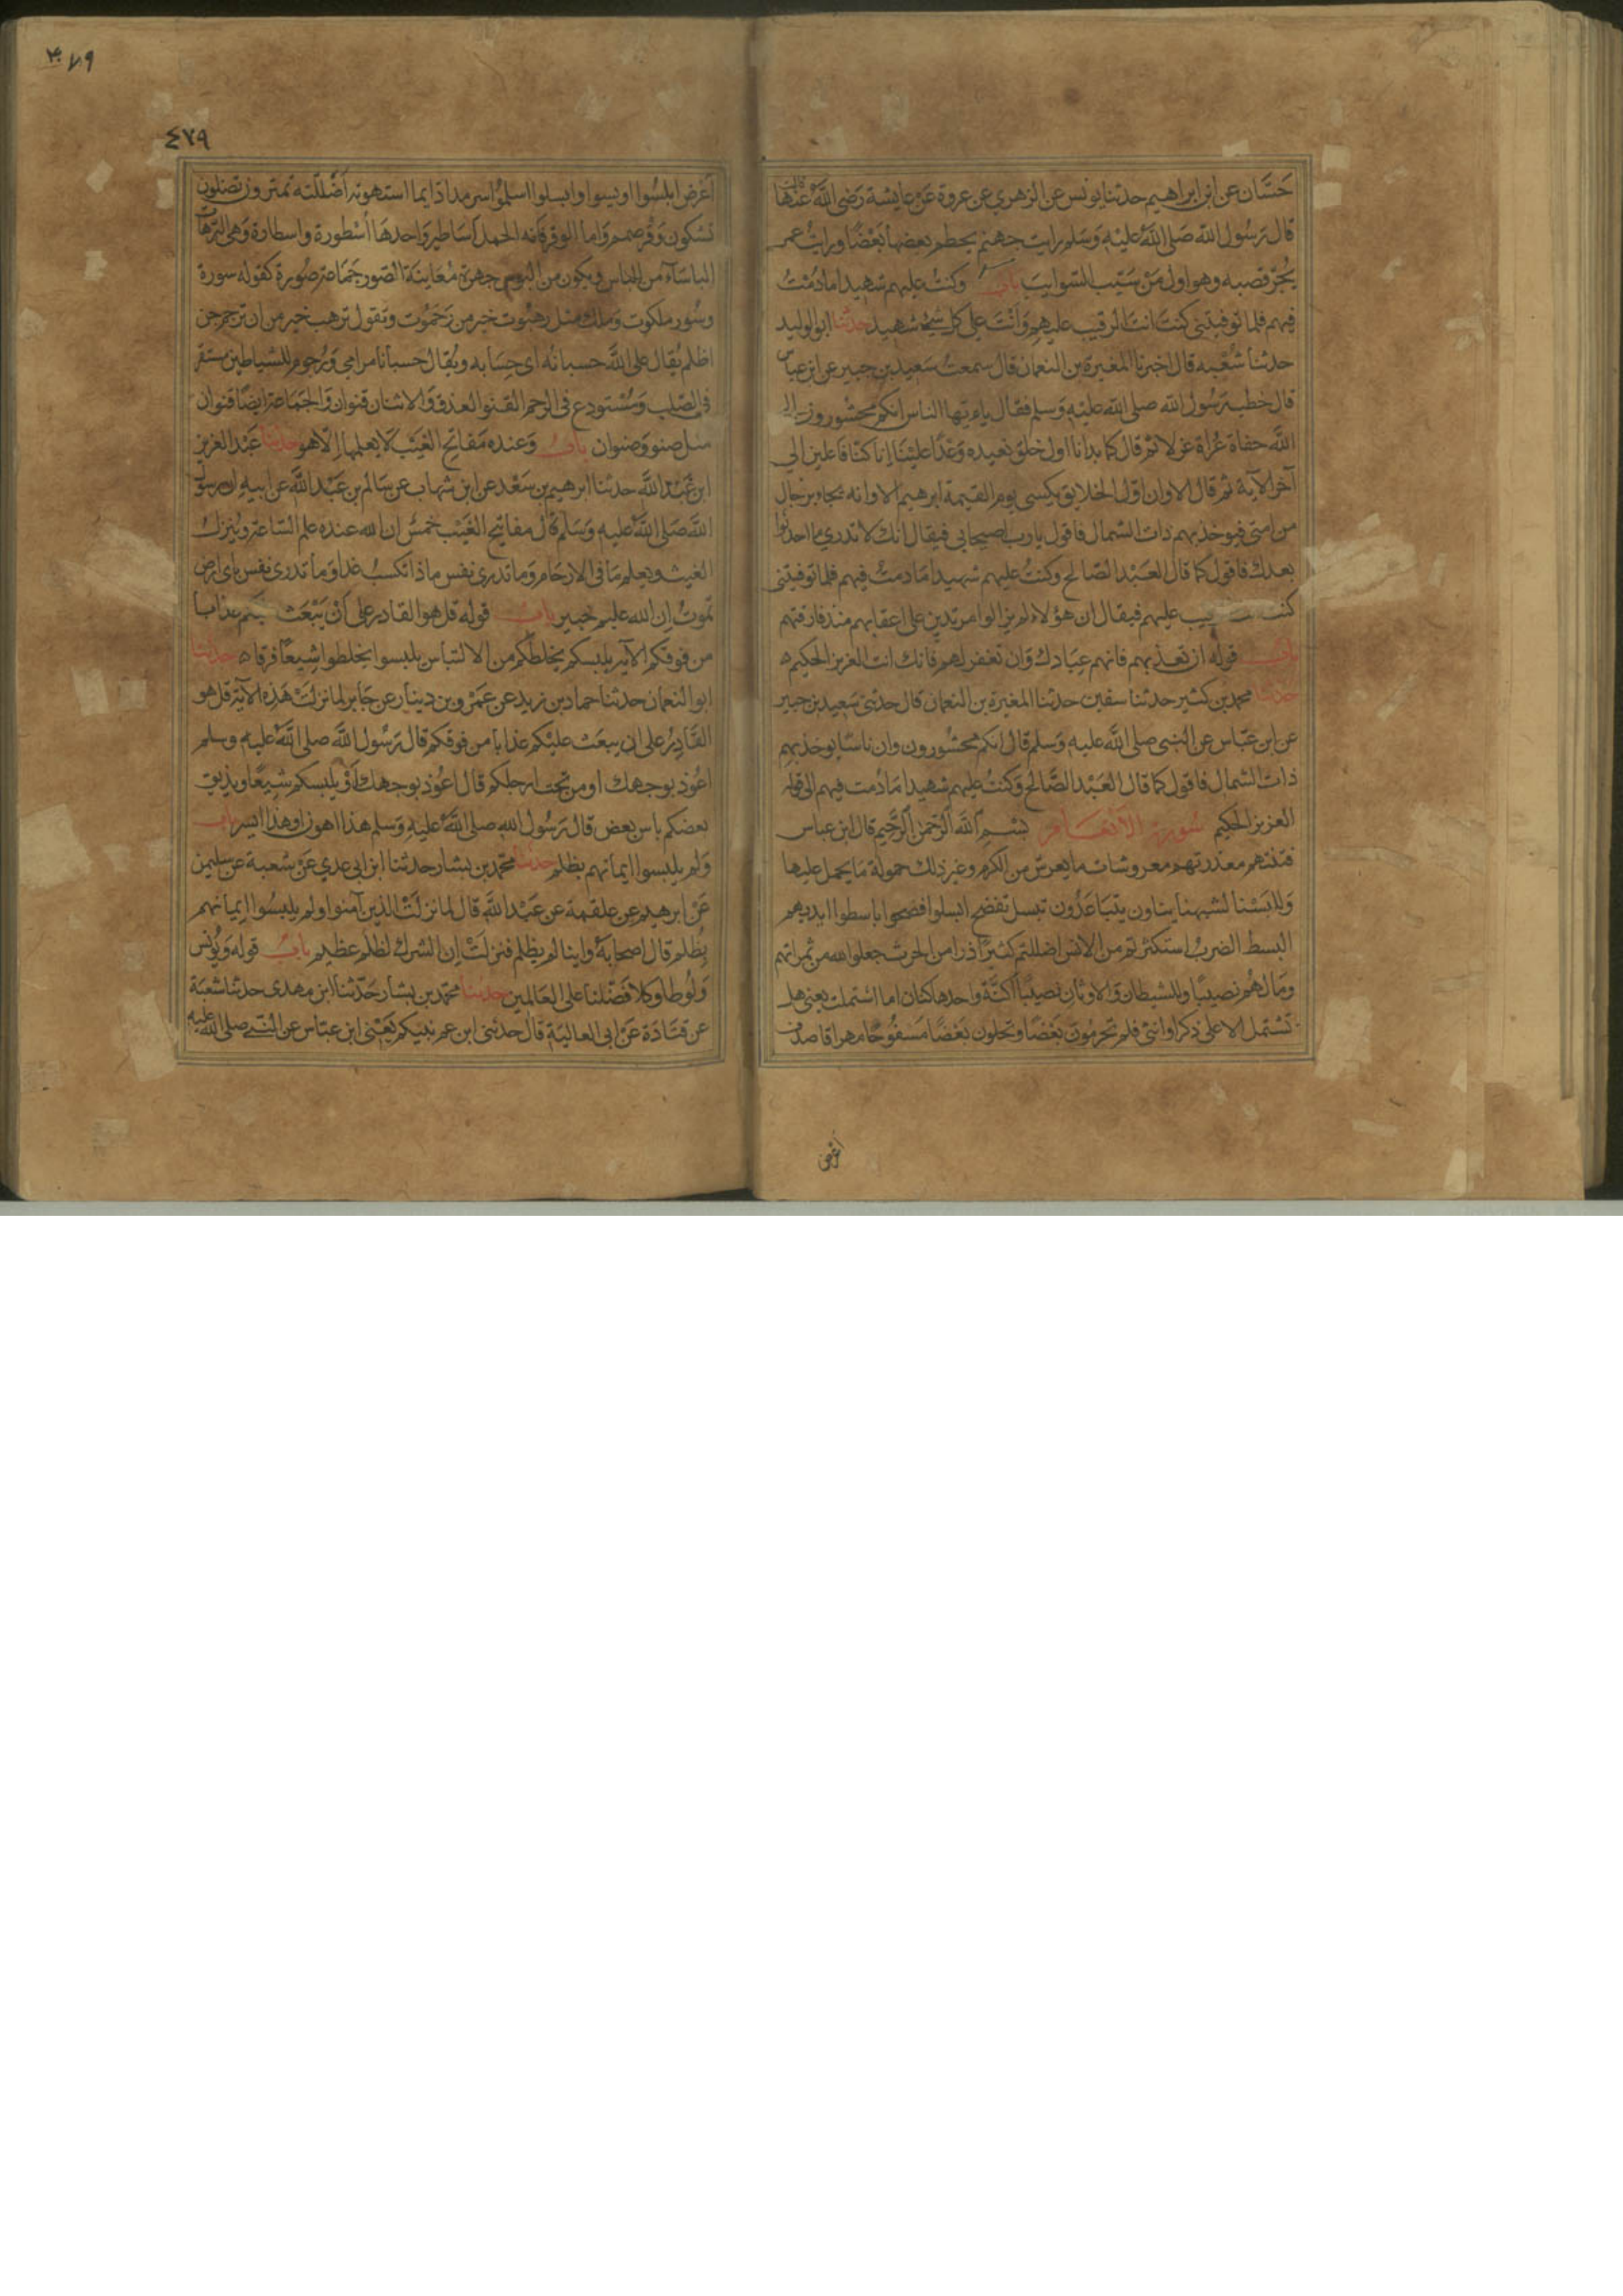 حسان عن ابن ابراهيم حدثنا يونس عن الزهري عن عروة عن عايشة رضي الله عنها قالت
قال رسول الله صلى الله عليه وسلم رايت جهنم يحطم بعضها بعضا ورايت عمر
يجر قصبه وهو اول من سيب السوايب باب وكنت عليهم شهيدا ما دمت
فيهم فلما توفيتني كنت انت الرقيب عليهم وانت على كل شيء شهيد حدثنا ابو الوليد
حدثنا شعبه قال اخبرنا المغيرة بن النعمان قال سمعت سعيد بن جبير عن ابن عباس
قال خطب رسول الله صلى الله عليه وسلم فقال يا ايها الناس انكم محشورون الى
الله حفاة عراة غرلا ثم قال كما بدانا اول خلق نعيده وعدا علينا انا كنا فاعلين الى
آخر الآية ثم قال الا وان اول الخلايق يكسى يوم القيمة ابرهيم الا وانه يجاء برجال
من امتي فيوخذ بهم ذات الشمال فاقول يا رب اصيحابي فيقال انك لا تدري ما احدثوا
بعدك فاقول كما قال العبد الصالح وكنت عليهم شهيدا ما دمت فيهم فلما توفيتني
كنت عليهم فيقال ان هؤلاء لم يزالوا مرتدين على اعقابهم منذ فارقتهم
باب قوله ان تعذبهم فانهم عبادك وان تغفر لهم فانك انت العزيز الحكيم ه
حدثنا محمد بن كثير حدثنا سفين حدثنا المغيرة بن النعمان قال حدثني سعيد بن جبير
عن ابن عباس عن النبي صلى الله عليه وسلم قال انكم محشورون وان ناسا يوخذ بهم
ذات الشمال فاقول كما قال العبد الصالح وكنت عليهم شهيدا ما دمت فيهم الى قوله
العزيز الحكيم سورة الأنعام بسم الله الرحمن الرحيم قال ابن عباس
فتنتهم معذرتهم معروشات ما يعرش من الكرم وغير ذلك حمولة ما يحمل عليها
وللبسنا لشبهنا يناون يتباعدون تبسل تفضح ابسلوا افضحوا باسطوا ايديهم
البسط الضرب استكثرتم من الانس اضللتم كثيرا ذرا من الحرث جعلوا لله من ثمراتهم
ومالهم نصيبا وللشيطان والاوثان نصيبا اكنة واحدها كنان اما اشتملت يعني هل
تشتمل الا على ذكر او انثى فلم تحرمون بعضا وتحلون بعضا مسفوحا مهراقا صدف
اعرض
٤٧٩
٤٧٩
اعرض ابلسوا اويسوا وابسلوا اسلموا سرمدا دايما استهوته أضللته تمترون تضلون
تشكون وقر صمم واما الوقر فانه الحمل اساطير واحدها أسطورة واسطارة وهي الترهات
الباساء من الباس ويكون من البوس جهرة معاينة الصور جماعة صورة كقوله سورة
وسور ملكوت وملك مثل رهبوت خير من رحموت وتقول ترهب خير من ان ترحم جن
اظلم يقال على الله حسبانه اى حسابه ويقال حسبانا مرامي ورجوم للشياطين مستقر
في الصلب ومستودع في الرحم القنو العذق والاثنان قنوان والجماعة ايضا قنوان
مثل صنو وصنوان باب وعنده مفاتح الغيب لا يعلمها الا هو حدثنا عبد العزيز
ابن عبد الله حدثنا ابرهيم بن سعد عن ابن شهاب عن سالم بن عبد الله عن ابيه ان رسول
الله صلى الله عليه وسلم قال مفاتيح الغيب خمس ان الله عنده علم الساعة وينزل
الغيث ويعلم ما في الارحام وما تدري نفس ماذا تكسب غدا وما تدري نفس باى ارض
تموت ان الله عليم خبير باب قوله قل هو القادر على أن يبعث عليكم عذابا
من فوقكم الآية يلبسكم يخلطكم من الالتباس يلبسوا يخلطوا شيعا فرقا ه حدثنا
ابو النعمان حدثنا حماد بن زيد عن عمرو بن دينار عن جابر لما نزلت هذه الآية قل هو
القادر على ان يبعث عليكم عذابا من فوقكم قال رسول الله صلى الله عليه وسلم
اعوذ بوجهك او من تحت ارجلكم قال اعوذ بوجهك أو يلبسكم شيعا ويذيق
بعضكم باس بعض قال رسول الله صلى الله عليه وسلم هذا اهون او هذا ايسر باب
ولم يلبسوا ايمانهم بظلم حدثنا محمد بن بشار حدثنا ابن ابي عدي عن شعبة عن سليمن
عن ابرهيم عن علقمة عن عبد الله قال لما نزلت الذين آمنوا ولم يلبسوا ايمانهم
بظلم قال اصحابه واينا لم يظلم فنزلت إن الشرك لظلم عظيم باب قوله ويونس
ولوطا وكلا فضلنا على العالمين حدثنا محمد بن بشار حدثنا ابن مهدى حدثنا شعبة
عن قتادة عن ابى العالية قال حدثنى ابن عم نبيكم يعني ابن عباس عن النبي صلى الله عليه